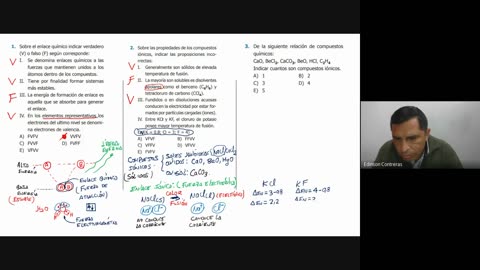 1. Sobre el enlace químico indicar verdadero
(V) o falso (F) según corresponde:
V I. Se denomina enlaces químicos a las
fuerzas que mantienen unidos a los
átomos dentro de los compuestos.
V II. Tiene por finalidad formar sistemas
más estables.
F III. La energía de formación de enlaces es
aquella que se absorbe para generar
el enlace.
V IV. En los elementos representativos los
electrones del último nivel se denominan
electrones de valencia.
A) FVFV B) VVFV
C) VVVV D) FVRF
E) VFVF
ALTA
ENERGÍA
BAJA
ENERGÍA
(ESTABLE)
ENLACE QUÍMICO
(FUERZA DE
ATRACCIÓN)
H2O
FUERZA
ELECTROMAGNÉTICA
2. Sobre las propiedades de los compuestos
iónicos, indicar las proposiciones
incorrectas:
V I. Generalmente son sólidos de elevada
temperatura de fusión.
F II. La mayoría son solubles en disolventes
apolares como el benceno (C6H6) y
tetracloruro de carbono (CCl4).
V III. Fundidos o en disoluciones acuosas
conducen la electricidad por estar formados
por partículas cargadas (iones).
IV. Entre KCl y KF, el cloruro de potasio
posee mayor temperatura de fusión.
A) VFVF B) FFVV
C) VFFV D) VVVF
E) FVFV
COMPUESTOS
IÓNICOS
(Sólidos)
SALES
NaCl, KCl
ÓXIDOS: CaO, BaO, MgO
CaCO3
ENLACE IÓNICO: (FUERZA ELECTROSTÁTICA)
NaCl(s) CALOR NaCl(l)
FUSIÓN
Na+ Cl- Na+ Cl-
NO CONDUCE CONDUCE LA
LA CORRIENTE CORRIENTE
3. De la siguiente relación de compuestos
químicos:
CaO, BeCl2, CaCO3, BeO, HCl, C2H4
Indicar cuántos son compuestos iónicos.
A) 1 B) 2
C) 3 D) 4
E) 5
KCl KF
ΔEN = 3-0,8 ΔEN = 4-0,8
ΔEN = 2,2 ΔEN =
Edinson Contreras